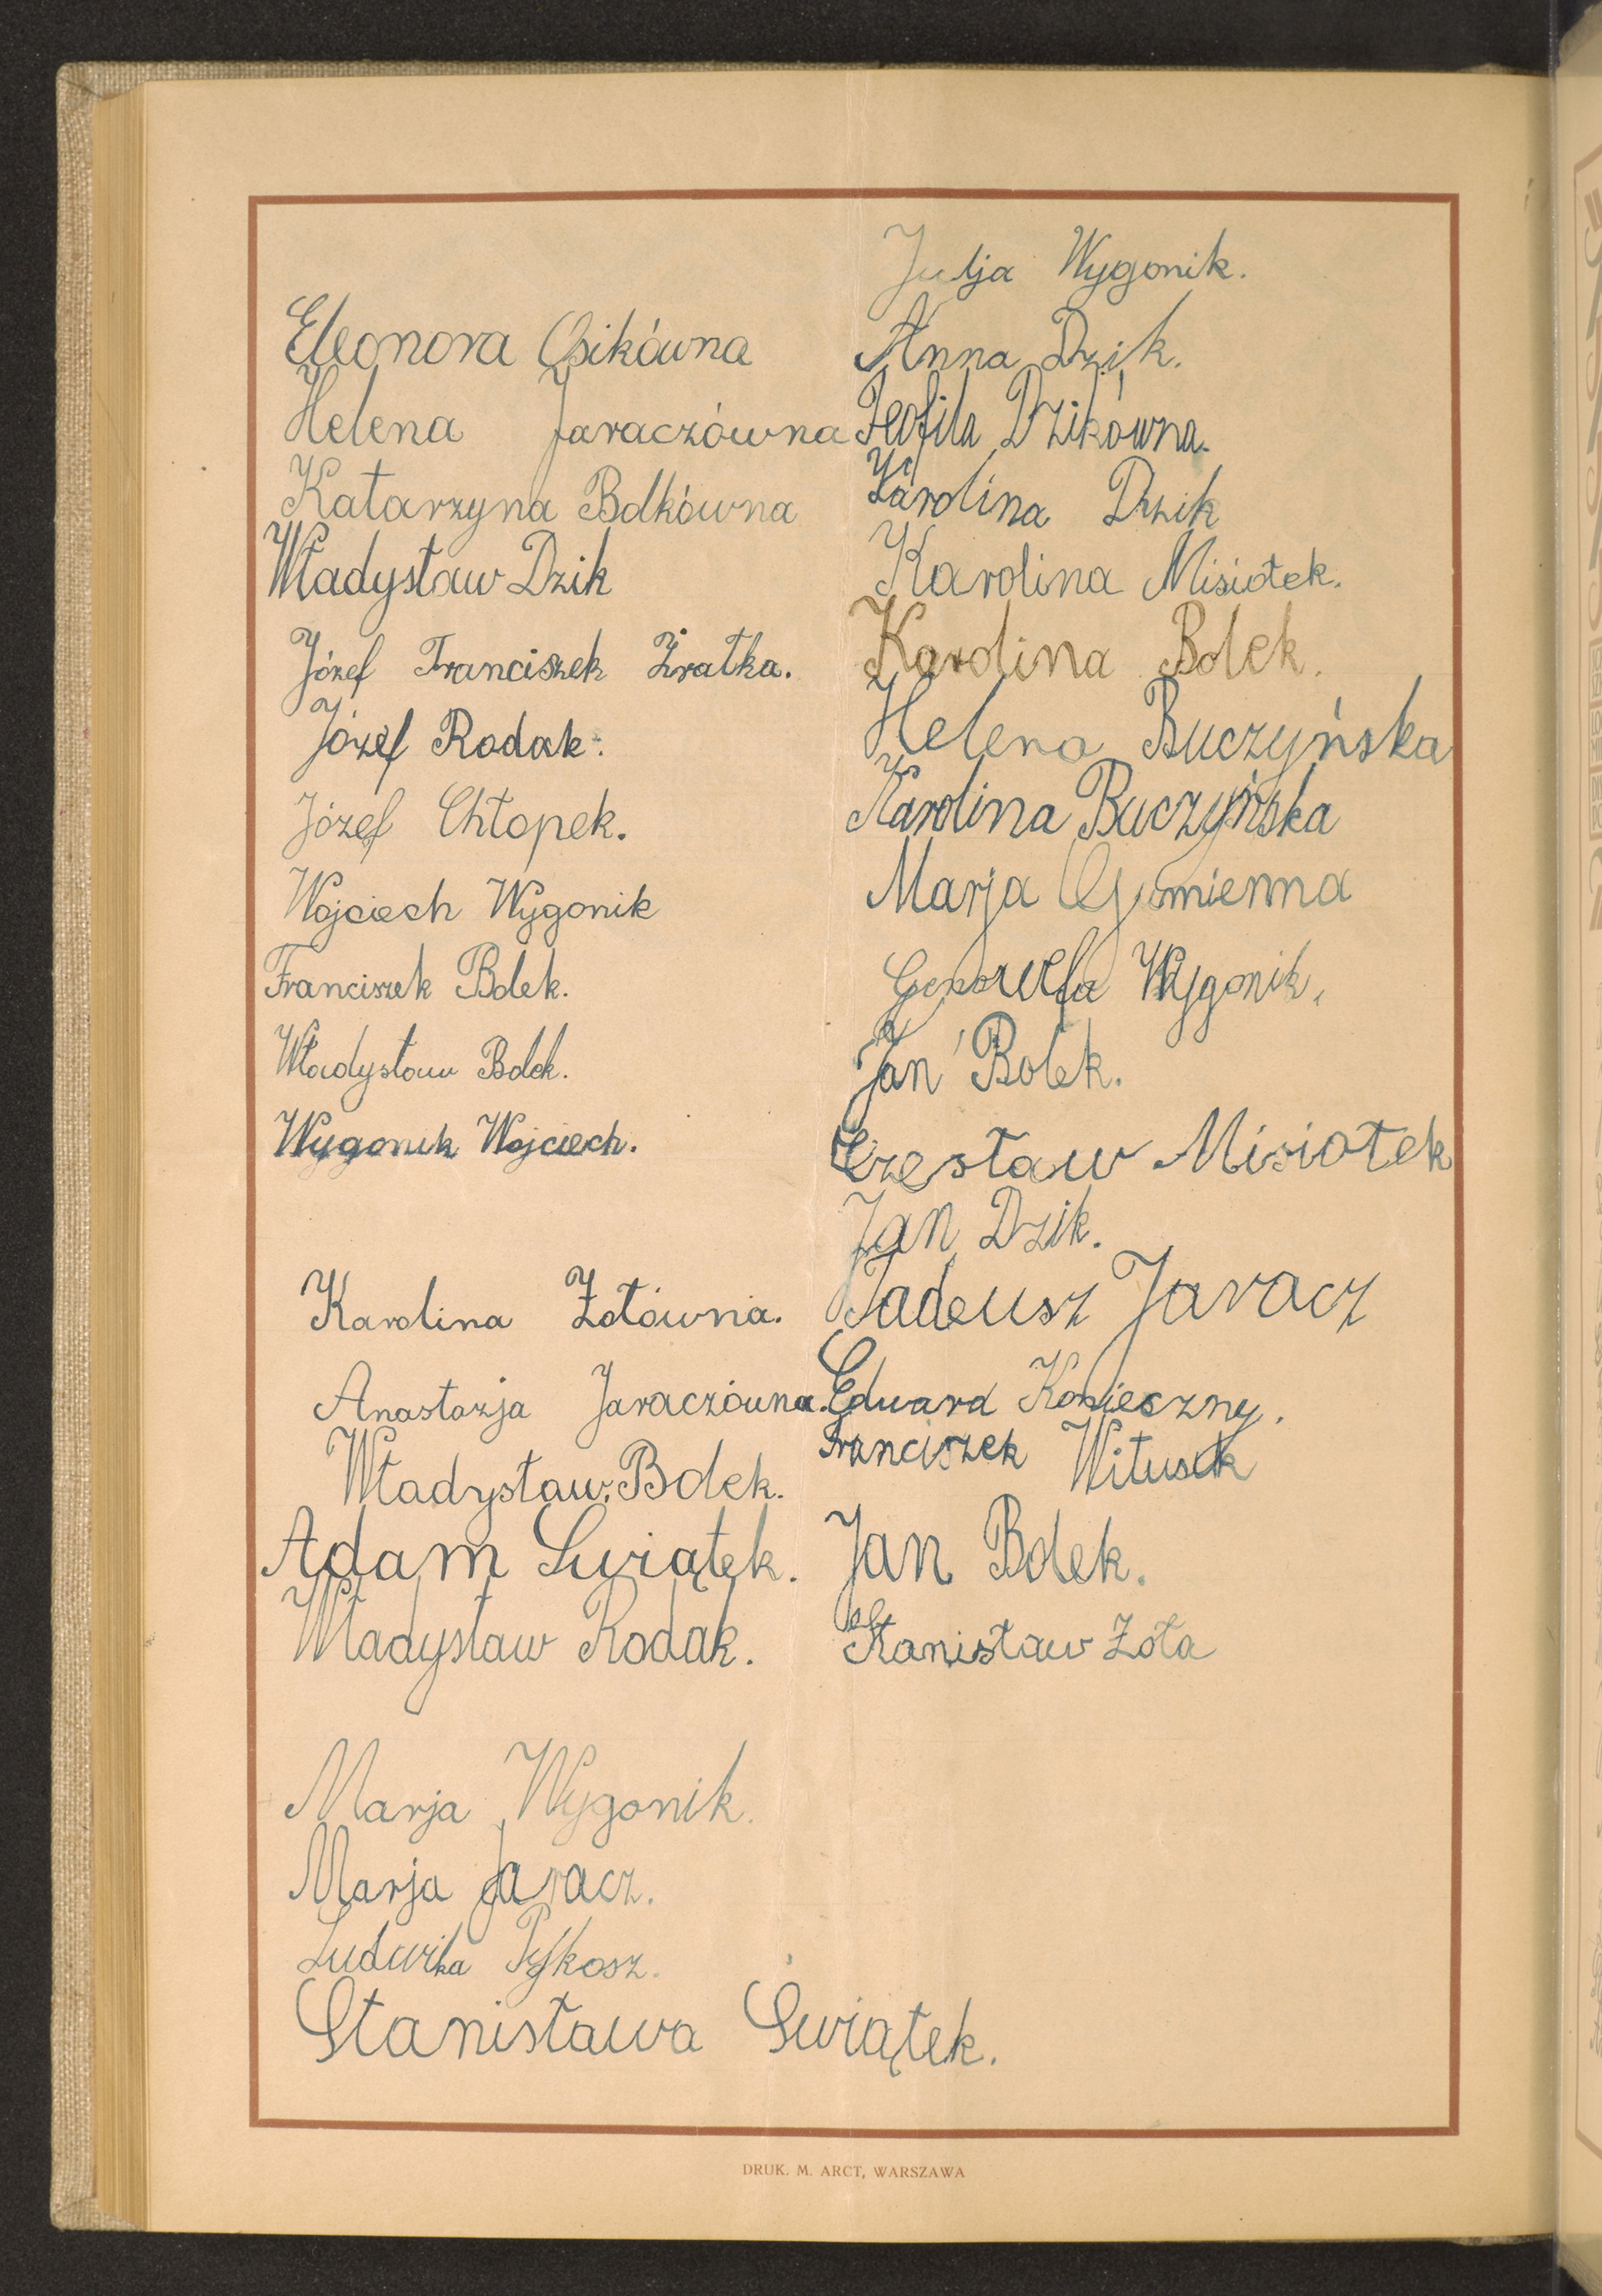 Eleonora Osikówna
Helena Jaraczówna
Katarzyna Bolkówna
Władysław Dzik
Józef Franciszek Żratka.
Józef Rodak.
Józef Chłopek.
Wojciech Wygonik
Franciszek Bolek.
Władysław Bolek.
Wygonik Wojciech.
Karolina Zołówna.
Anastazja Jaraczówna.
Władysław Bolek.
Adam Swiątek.
Władysław Rodak.
Marja Wygonik.
Marja Jaracz.
Ludwika Pykosz.
Stanisława Swiątek.
Julja Wygonik.
Anna Dzik.
Teofila Dzikówna.
Karolina Dzik
Karolina Misiołek.
Karolina Bolek.
Helena Buczyńska
Karolina Buczyńska
Marja Gumienna
Genowefa Wygonik.
Jan Bolek.
Czesław Misiołek
Jan Dzik.
Tadeusz Jaracz
Edward Konieczny.
Franciszek Witusik
Jan Bolek.
Stanisław Zoła
DRUK. M. ARCT, WARSZAWA